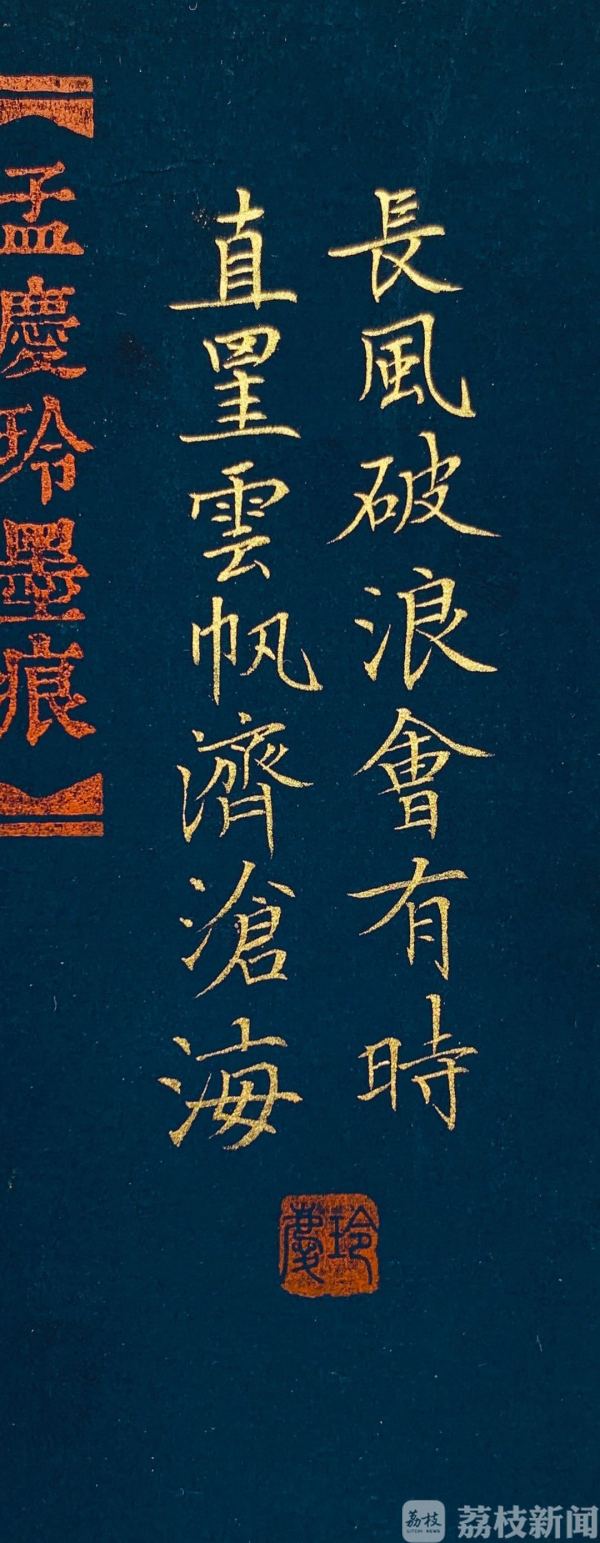 長風破浪會有時
直罣雲帆濟滄海
慶玲
【孟慶玲墨痕】
荔枝
LITCHI NEWS
荔枝新闻